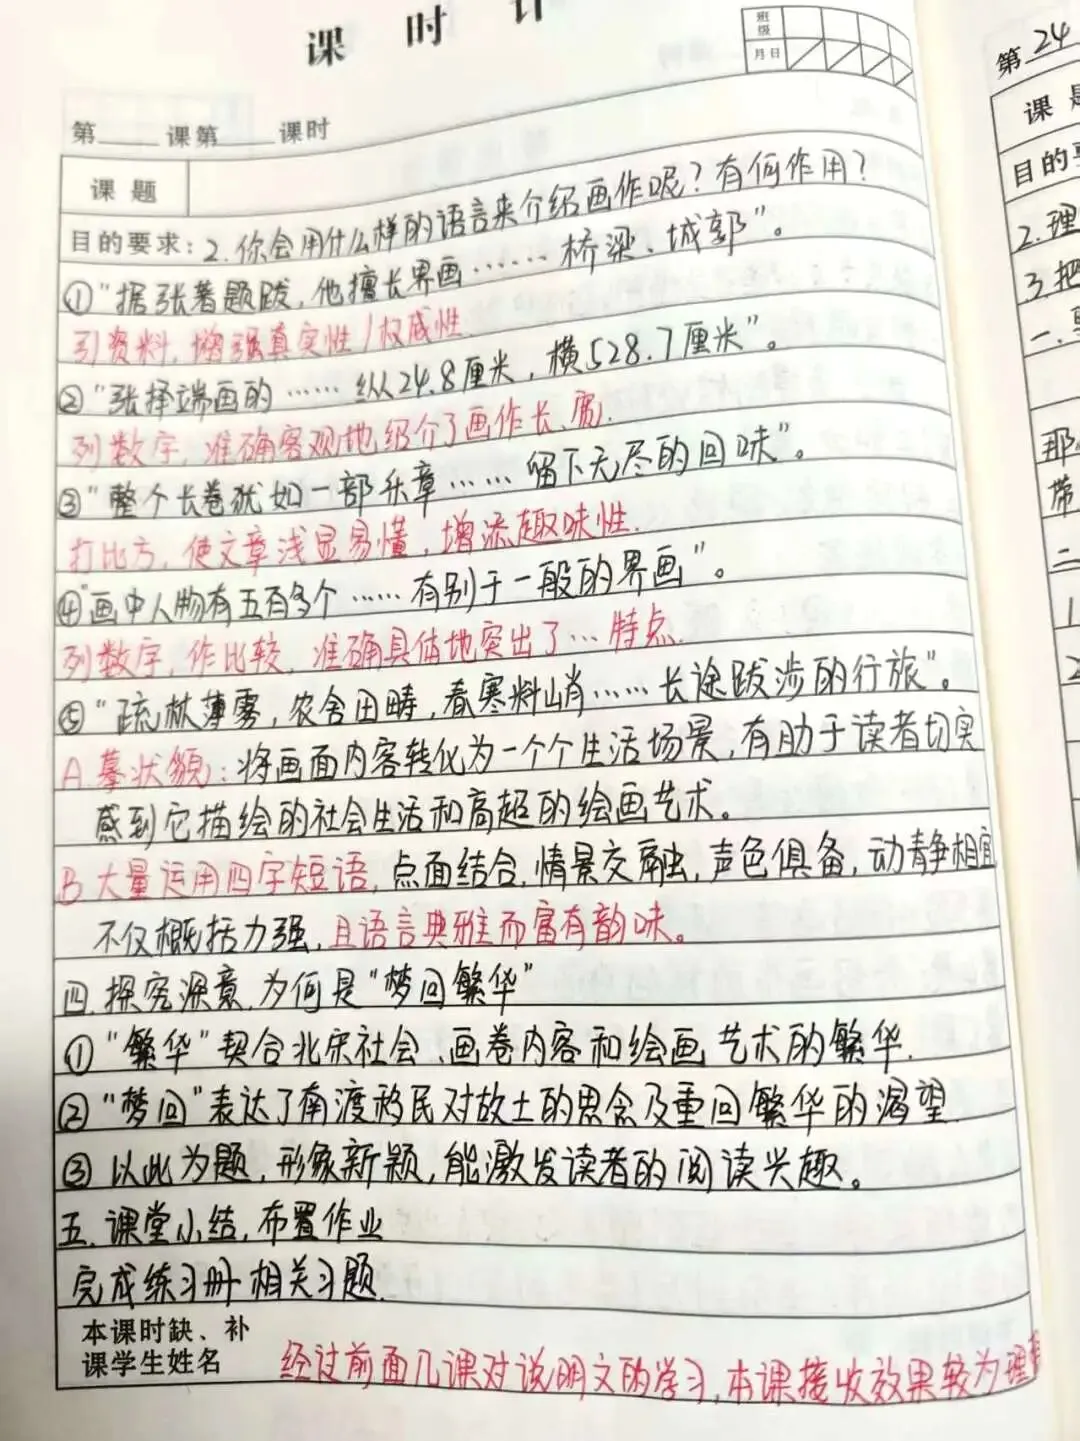 课 时 计
班级
月日
第____课第____课时
课 题
目的要求：2.你会用什么样的语言来介绍画作呢？有何作用？
①“据张著题跋，他擅长界画……桥梁、城郭”。
引资料，增强真实性/权威性.
②“张择端画的……纵24.8厘米，横528.7厘米”。
列数字，准确客观地绍介了画作长、宽.
③“整个长卷犹如一部乐章……留下无尽的回味”。
打比方，使文章浅显易懂，增添趣味性.
④“画中人物有五百多个……有别于一般的界画”。
列数字，作比较，准确具体地突出了…特点.
⑤“疏林薄雾，农舍田畴，春寒料峭……长途跋涉的行旅”。
A.摹状貌：将画面内容转化为一个个生活场景，有助于读者切实
感到它描绘的社会生活和高超的绘画艺术。
B.大量运用四字短语，点面结合，情景交融，声色俱备，动静相宜
不仅概括力强，且语言典雅而富有韵味。
四.探究深意，为何是“梦回繁华”
①“繁华”契合北宋社会、画卷内容和绘画艺术的繁华.
②“梦回”表达了南渡移民对故土的思念及重回繁华的渴望.
③以此为题，形象新颖，能激发读者的阅读兴趣。
五.课堂小结，布置作业
完成练习册相关习题.
本课时缺、补
课学生姓名
经过前面几课对说明文的学习，本课接收效果较为理
第24
课
目的
2.理
3.把
一.
那
带
二
1
2